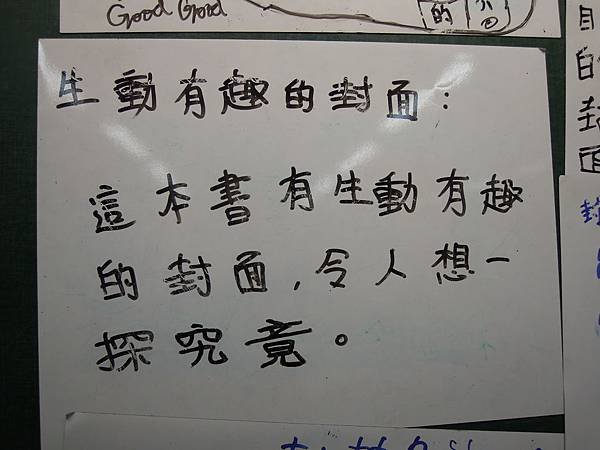 Good Good
的
生動有趣的封面：
這本書有生動有趣
的封面,令人想一
探究竟。
目
的
封
面
封